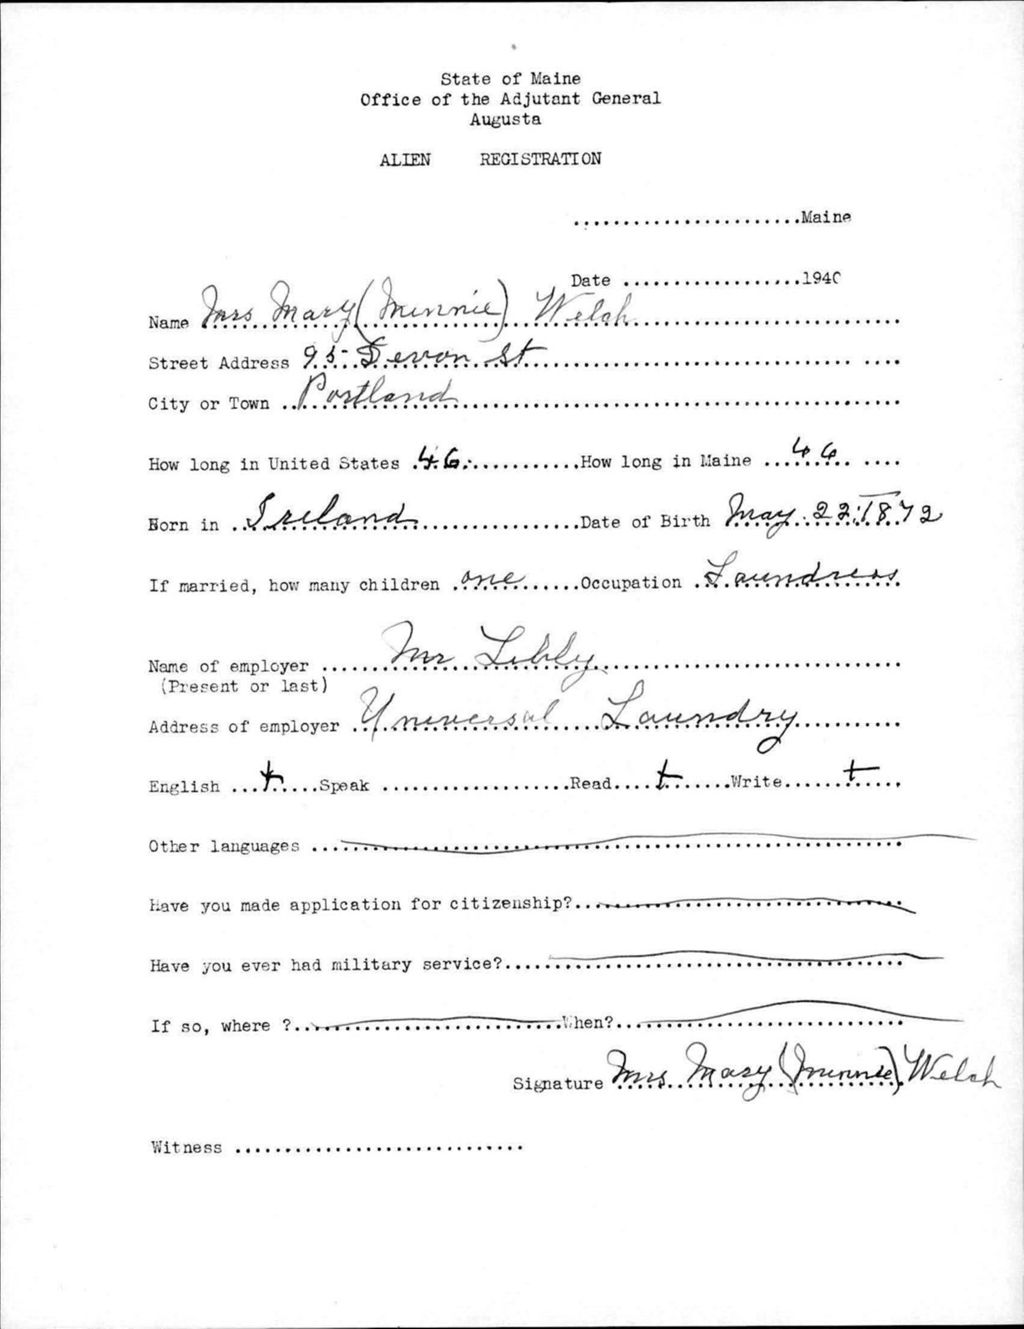 State of Maine
Office of the Adjutant General
Augusta
ALIEN REGISTRATION
.......................Maine
Date ..................1940
Name Mrs Mary (Minnie) Welch
Street Address 95 Devon St
City or Town Portland
How long in United States 46 How long in Maine 46
Born in Ireland Date of Birth May 22 1872
If married, how many children one Occupation Laundress
Name of employer Mr Libby
(Present or last)
Address of employer Universal Laundry
English + Speak Read + Write +
Other languages
Have you made application for citizenship?
Have you ever had military service?
If so, where ? When?
Signature Mrs Mary (Minnie) Welch
Witness .............................